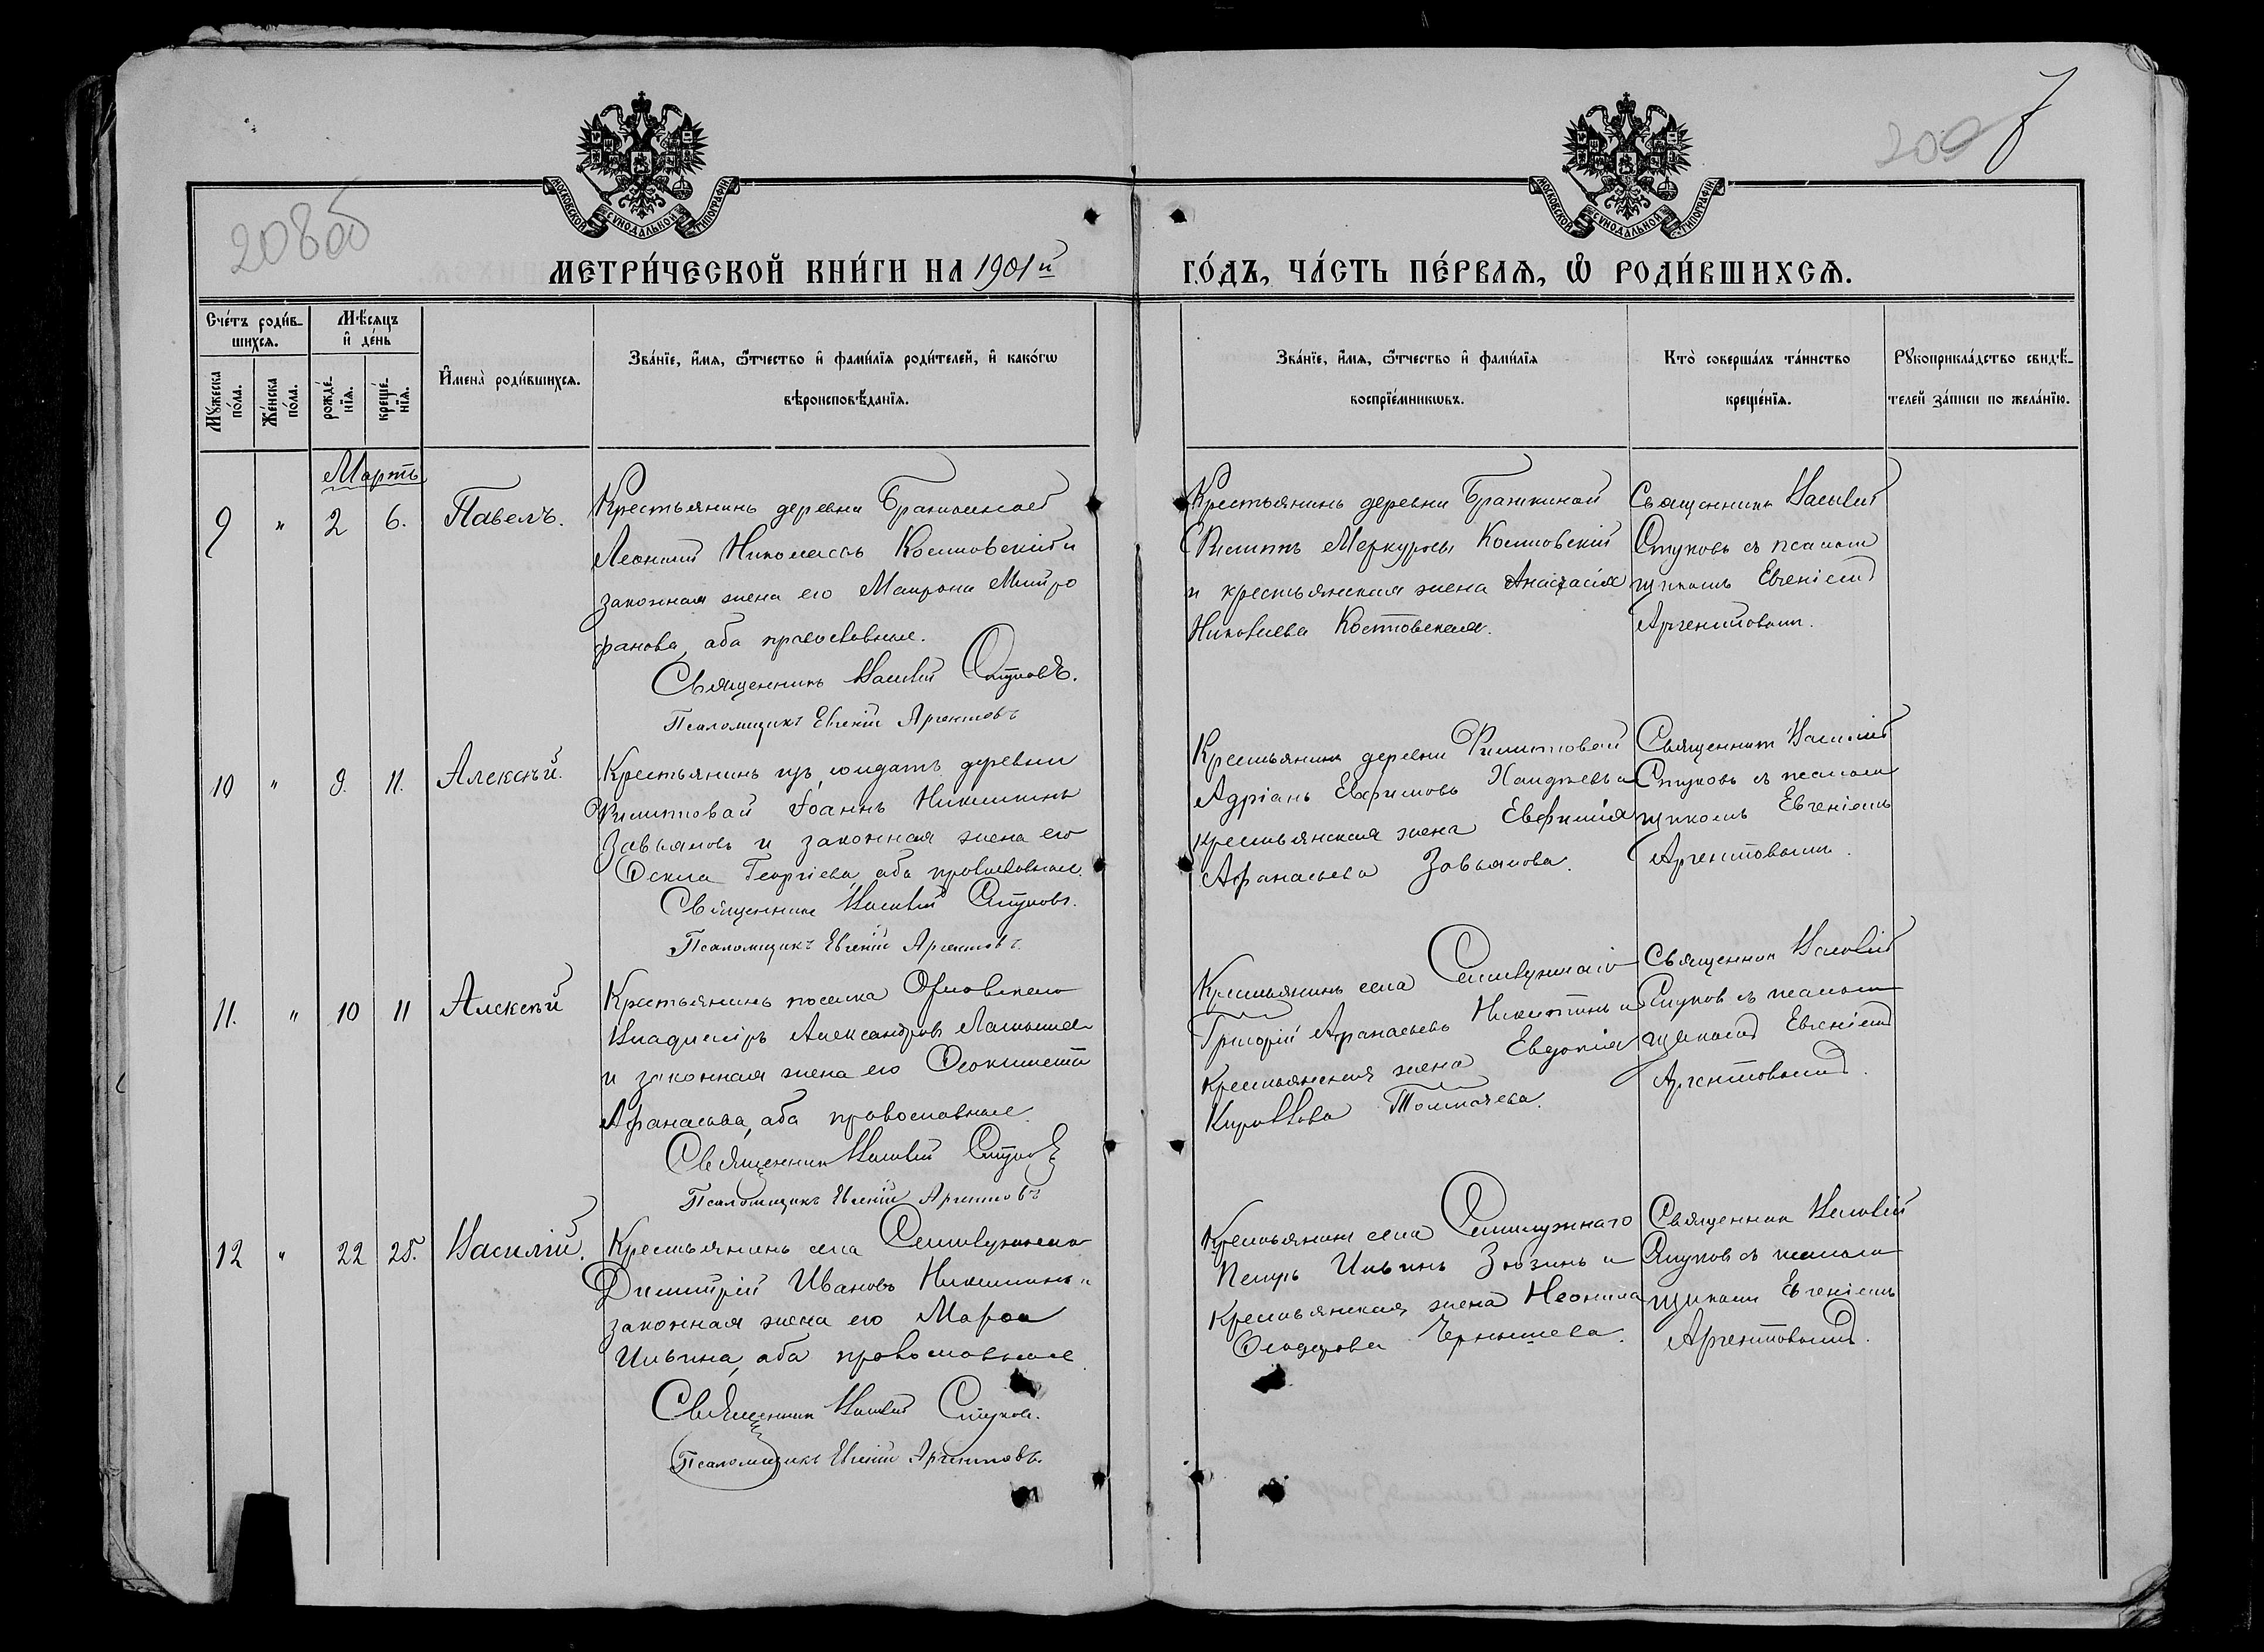 208об
209
7
МОСКОВСКОЙ СѴНОДАЛЬНОЙ ТИПОГРАФІИ
МОСКОВСКОЙ СѴНОДАЛЬНОЙ ТИПОГРАФІИ
МЕТРИ́ЧЕСКОЙ КНИ́ГИ НА 1901й
ГО́ДЪ, ЧА́СТЬ ПЕ́РВАѦ, Ѽ РОДИ́ВШИХСѦ.
Сче́тъ роди́в-
шихсѧ.
Мѣ́сѧцъ
и҆ де́нь
Мꙋ́жеска
по́ла.
Же́нска
по́ла.
рожде́-
нїѧ.
креще́-
нїѧ.
И҆мена̀ роди́вшихсѧ.
Зва́нїе, и҆́мѧ, ѻ҆́тчество и҆ фами́лїѧ роди́телей, и҆ како́гѡ
вѣроисповѣ́данїѧ.
Зва́нїе, и҆́мѧ, ѻ҆́тчество и҆ фами́лїѧ
воспрїе́мникѡвъ.
Кто̀ соверша́лъ та́инство
креще́нїѧ.
Рꙋкоприкла́дство свидѣ́-
телей за́писи по жела́нїю.
Мартъ
9 " 2 6. Павелъ.
Крестьянинъ деревни
Леонтій Николаевъ Костовскій и
законная жена его Матрона Митро
фанова, оба православные.
Священникъ Василій Стуковъ.
Псаломщикъ Евгеній Аргентовъ
Крестьянинъ деревни
Филиппъ Меркурьевъ Костовскій
и крестьянская жена Анастасія
Николаева Костовская.
Священникъ Василій
Стуковъ съ псалом
щикомъ Евгеніемъ
Аргентовымъ.
10 " 9. 11. Алексѣй.
Крестьянинъ изъ солдатъ деревни
Филипповой Іоаннъ Никитинъ
Завьяловъ и законная жена его
Георгіева, оба православные.
Священникъ Василій Стуковъ.
Псаломщикъ Евгеній Аргентовъ
Крестьянинъ деревни Филипповой
Адріанъ Евфимовъ и
крестьянская жена Евфимія
Афанасьева Завьялова.
Священникъ Василій
Стуковъ съ псалом
щикомъ Евгеніемъ
Аргентовымъ.
11. " 10 11 Алексѣй
Крестьянинъ поселка Орловскаго
Владиміръ Александровъ
и законная жена его Феоктиста
Афанасьева, оба православные.
Священникъ Василій Стуковъ
Псаломщикъ Евгеній Аргентовъ
Крестьянинъ села Семилужнаго
Григорій Афанасьевъ Никитинъ и
крестьянская жена Евдокія
Кириллова Толмачева.
Священникъ Василій
Стуковъ съ псалом
щикомъ Евгеніемъ
Аргентовымъ.
12 " 22 25. Василій.
Крестьянинъ села Семилужнаго
Димитрій Ивановъ Никитинъ и
законная жена его Марѳа
Ильина, оба православные.
Священникъ Василій Стуковъ.
Псаломщикъ Евгеній Аргентовъ.
Крестьянинъ села Семилужнаго
Петръ Ильинъ Зюзинъ и
крестьянская жена Неонила
Чернышева.
Священникъ Василій
Стуковъ съ псалом
щикомъ Евгеніемъ
Аргентовымъ.